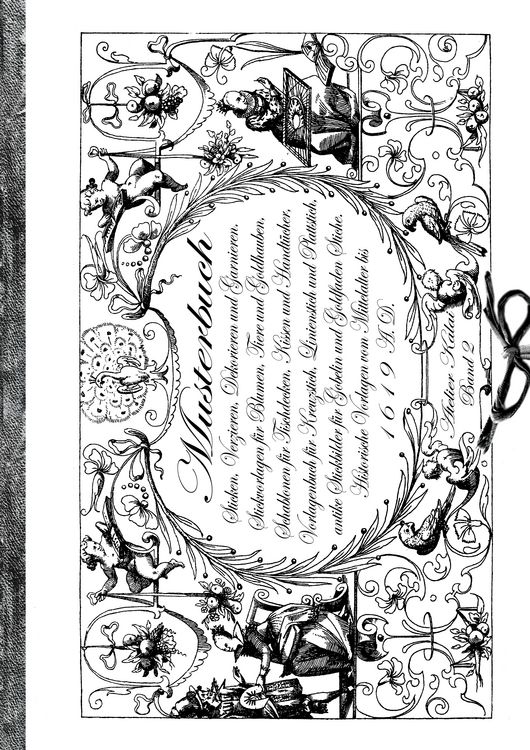 Musterbuch
Sticken, Verzieren, Dekorieren und Garnieren,
Stickvorlagen für Blumen, Tiere und Goldhauben,
Schablonen für Tischdecken, Kissen und Handtücher,
Vorlagenbuch für Kreuzstich, Linienstich und Plattstich,
antike Stickbilder für Gobelin und Goldfaden Stude.
Historische Vorlagen vom Mittelalter bis
1619 A.D.
Atelier Kedai
Band 2